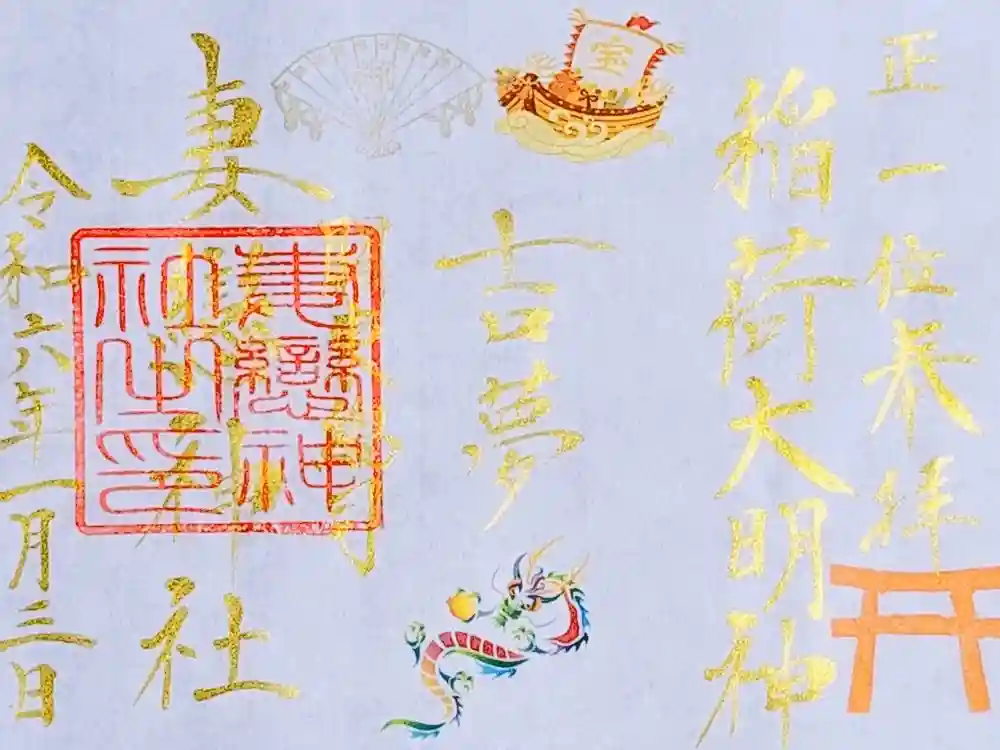 正一位恭拝
稲荷大明神
宝
吉夢
妻戀神社
妻戀神
社之印
令和六年一月三日